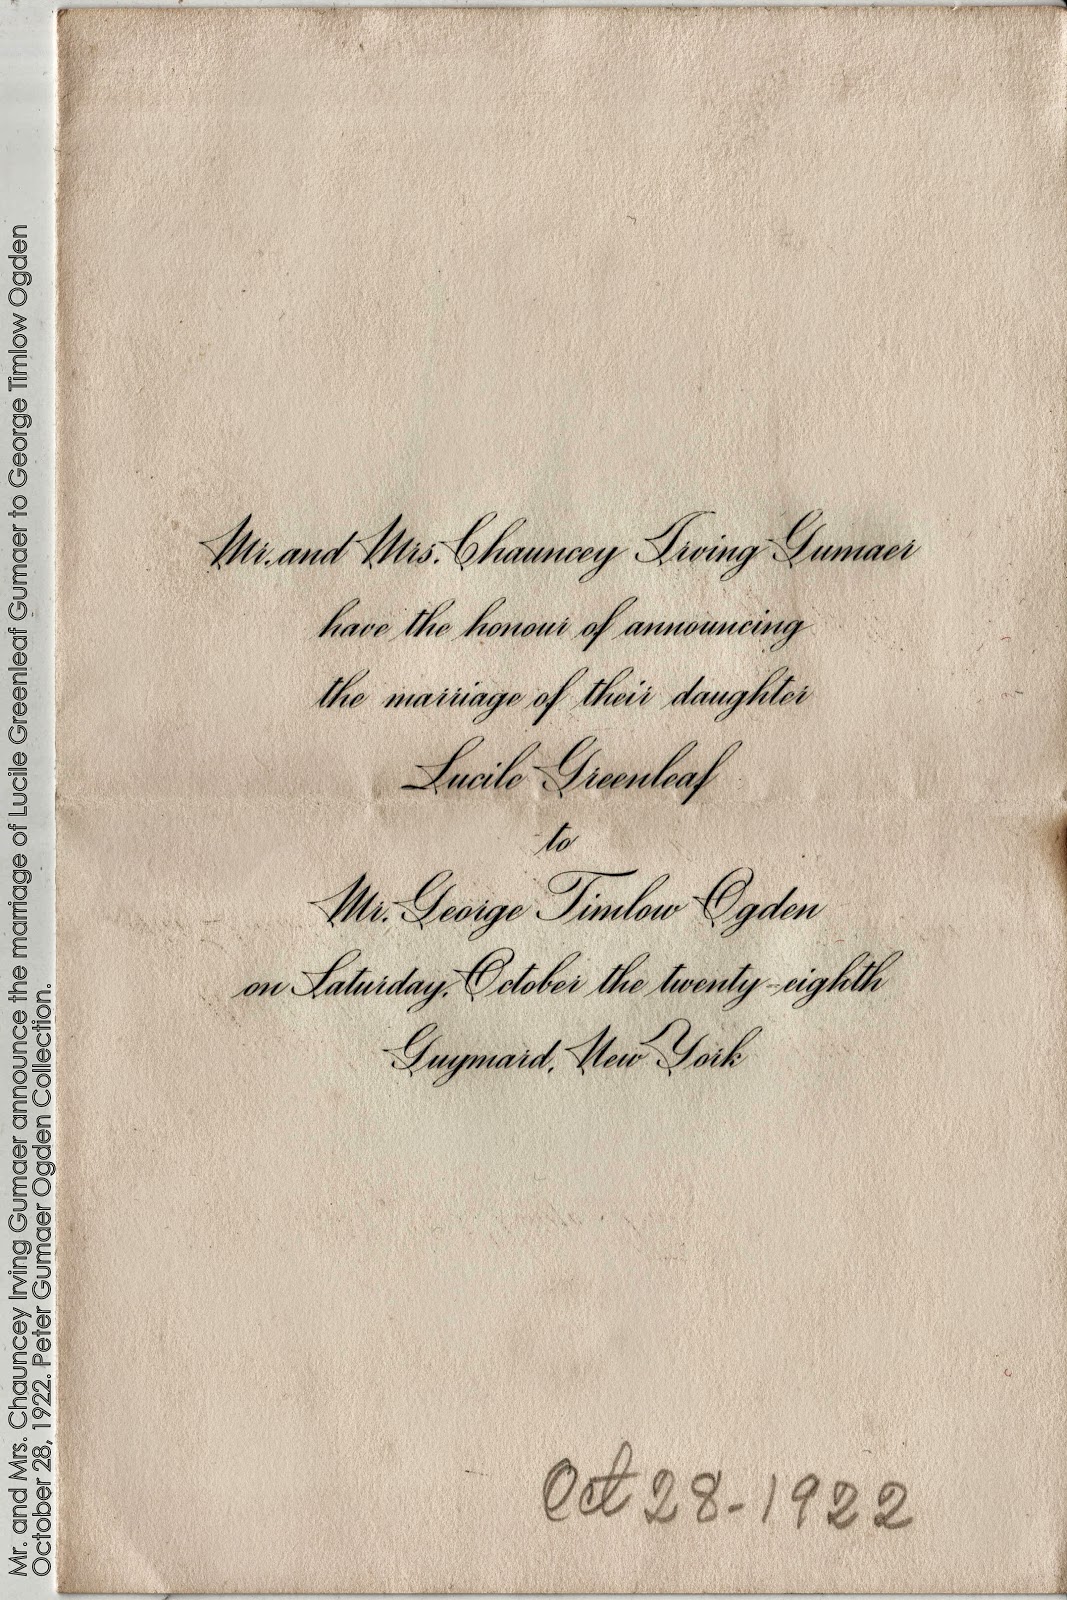 Mr. and Mrs. Chauncey Irving Gumaer announce the marriage of Lucile Greenleaf Gumaer to George Timlow Ogden
October 28, 1922. Peter Gumaer Ogden Collection.
Mr. and Mrs. Chauncey Irving Gumaer
have the honour of announcing
the marriage of their daughter
Lucile Greenleaf
to
Mr. George Timlow Ogden
on Saturday, October the twenty-eighth
Guymard, New York
Oct 28-1922